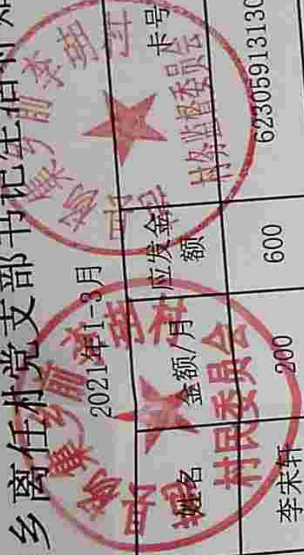 乡离任村党支部书记生活补
2021年1-3月
姓名 金额/月 应发金额 卡号
李宋轩 200 600 62305913130
村民委员会
村务监督委员会